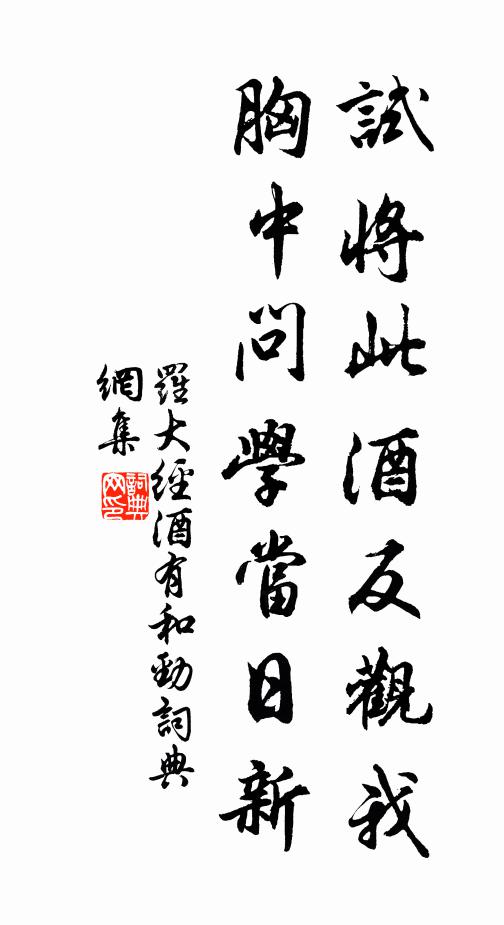 試將此酒反觀我
胸中問學當日新
羅大經酒有和勁詞典
網集
詞典
网印